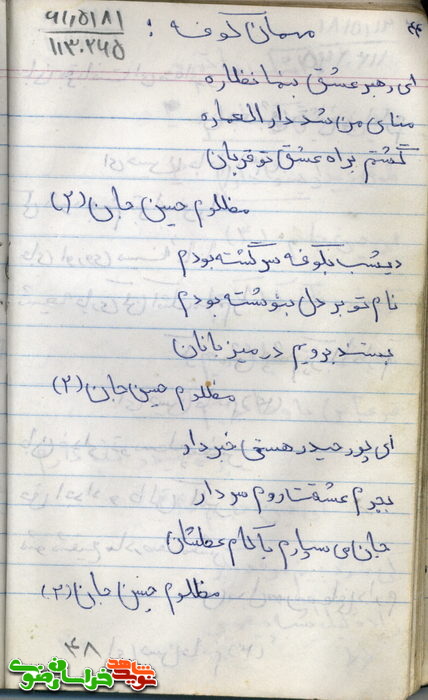 ۴۴
۹۱٫۵۱۸۱
۱۱۳۰۲۴۵
مهمان کوفه :
ای رهبر عشق بنما نظاره
منای من شد دارالعماره
گشتم براه عشق تو قربان
مظلوم حسین جان (۲)
دیشب بکوفه سرگشته بودم
نام تو بر دل بنوشته بودم
بستند برویم در میزبانان
مظلوم حسین جان (۲)
ای پور حیدر هستی خبردار
بجرم عشقت روم سردار
جان می سپارم با کام عطشان
مظلوم حسین جان (۲)
۴۸
نوید شاهد خراسان رضوی